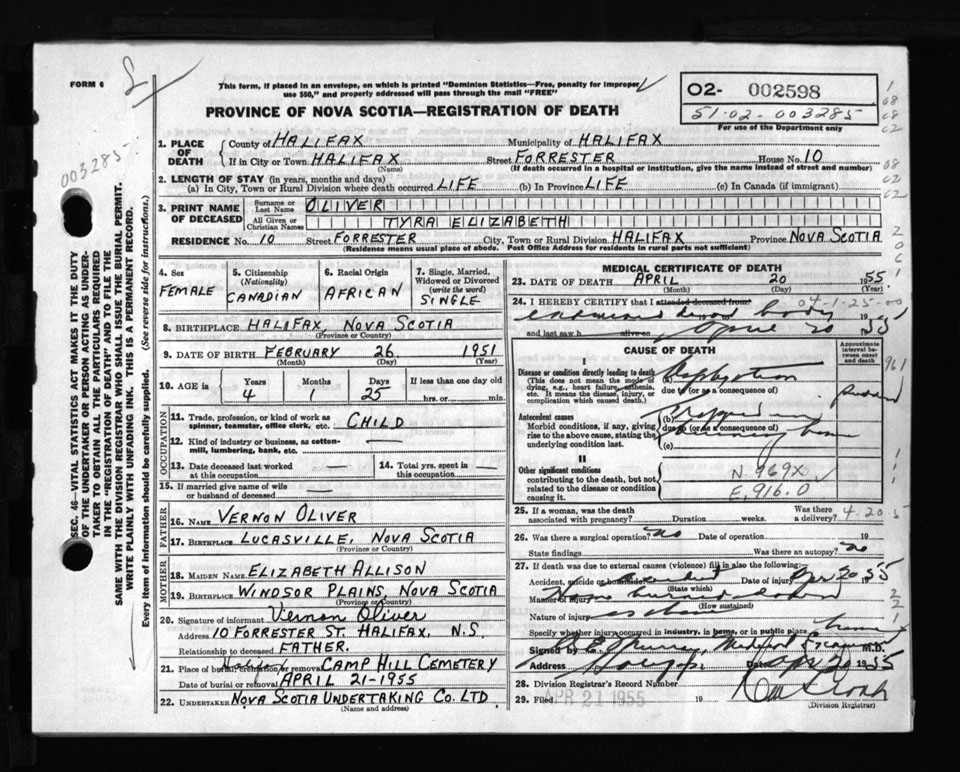 FORM 6
This form, if placed in an envelope, on which is printed "Dominion Statistics—Free, penalty for improper
use $50," and properly addressed will pass through the mail "FREE"
PROVINCE OF NOVA SCOTIA—REGISTRATION OF DEATH
O2- 002598
51-02-003285
For use of the Department only
003285
SEC. 46—VITAL STATISTICS ACT MAKES IT THE DUTY
OF THE UNDERTAKER OR PERSON ACTING AS UNDER-
TAKER TO OBTAIN ALL THE PARTICULARS REQUIRED
IN THE "REGISTRATION OF DEATH" AND TO FILE THE
SAME WITH THE DIVISION REGISTRAR WHO SHALL ISSUE THE BURIAL PERMIT.
WRITE PLAINLY WITH UNFADING INK. THIS IS A PERMANENT RECORD.
Every item of information should be carefully supplied. (See reverse side for instructions.)
1. PLACE OF DEATH
County of HALIFAX Municipality of HALIFAX
If in City or Town HALIFAX Street FORRESTER House No. 10
(Name) (If death occurred in a hospital or institution, give the name instead of street and number)
2. LENGTH OF STAY (in years, months and days)
(a) In City, Town or Rural Division where death occurred LIFE (b) In Province LIFE (c) In Canada (if immigrant)
3. PRINT NAME OF DECEASED
Surname or Last Name OLIVER
All Given or Christian Names TYRA ELIZABETH
RESIDENCE No. 10 Street FORRESTER City, Town or Rural Division HALIFAX Province NOVA SCOTIA
(Residence means usual place of abode. Post Office Address for residents in rural parts not sufficient)
4. Sex FEMALE
5. Citizenship (Nationality) CANADIAN
6. Racial Origin AFRICAN
7. Single, Married, Widowed or Divorced (write the word) SINGLE
8. BIRTHPLACE HALIFAX NOVA SCOTIA
(Province or Country)
9. DATE OF BIRTH FEBRUARY 26 1951
(Month) (Day) (Year)
10. AGE in Years 4 Months 1 Days 25 If less than one day old hrs. or min.
OCCUPATION
11. Trade, profession, or kind of work as
spinner, teamster, office clerk, etc. CHILD
12. Kind of industry or business, as cotton-
mill, lumbering, bank, etc. —
13. Date deceased last worked
at this occupation —
14. Total yrs. spent in
this occupation —
15. If married give name of wife
or husband of deceased —
FATHER
16. NAME VERNON OLIVER
17. BIRTHPLACE LUCASVILLE, NOVA SCOTIA
(Province or Country)
MOTHER
18. MAIDEN NAME ELIZABETH ALLISON
19. BIRTHPLACE WINDSOR PLAINS, NOVA SCOTIA
(Province or Country)
20. Signature of informant Vernon Oliver
Address 10 FORRESTER ST. HALIFAX, N.S.
Relationship to deceased FATHER.
21. Place of burial, cremation or removal CAMP HILL CEMETERY
Date of burial or removal APRIL 21-1955
22. UNDERTAKER NOVA SCOTIA UNDERTAKING CO. LTD
(Name and address)
MEDICAL CERTIFICATE OF DEATH
23. DATE OF DEATH APRIL 20 1955
(Month) (Day)
24. I HEREBY CERTIFY that I attended deceased from 04-1-25-00
examined dead body 19
and last saw h alive on April 20 1955
CAUSE OF DEATH
Approximate interval between onset and death
I
Disease or condition directly leading to death
(This does not mean the mode of
dying, e.g., heart failure, asthenia,
etc. It means the disease, injury, or
complication which caused death.)
(a) Asphyxation
due to (or as a consequence of)
sudden
961
Antecedent causes
Morbid conditions, if any, giving
rise to the above cause, stating the
underlying condition last.
(b) Trapped in
due to (or as a consequence of)
burning home
(c)
II
Other significant conditions
contributing to the death, but not
related to the disease or condition
causing it.
N. 969X
E. 916.0
25. If a woman, was the death
associated with pregnancy? Duration weeks. Was there a delivery? 4.20.5
26. Was there a surgical operation? no Date of operation 19
State findings Was there an autopsy? no
27. If death was due to external causes (violence) fill in also the following:
Accident, suicide or homicide? accident Date of injury Apr 20 1955
(State which)
Manner of injury Home burned down
(How sustained)
Nature of injury as above
Specify whether injury occurred in industry, in home, or in public place home
Signed by Medical Examiner M.D.
Address Date Apr 20 1955
28. Division Registrar's Record Number
29. Filed APR 21 1955 19
(Division Registrar)